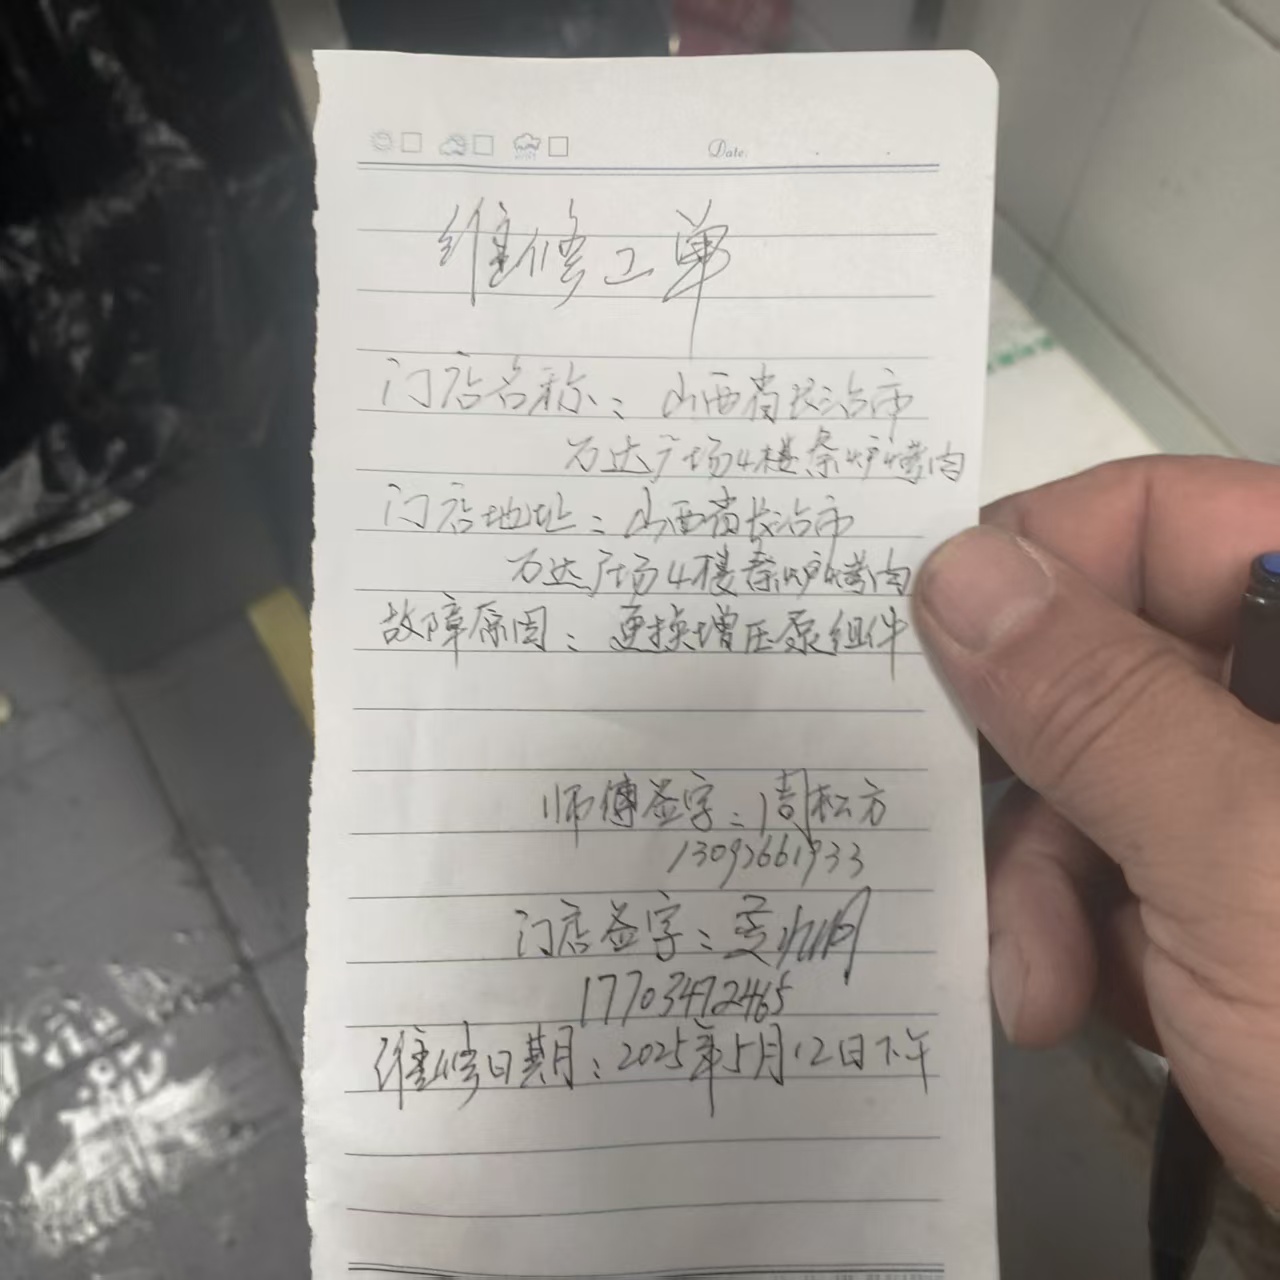 Date:
维修工单
门店名称：山西省长治市
万达广场4楼柴炉烤肉
门店地址：山西省长治市
万达广场4楼柴炉烤肉
故障原因：更换增压泵组件
师傅签字：周松方
13092661933
门店签字：
17703472465
维修日期月：2025年5月12日下午